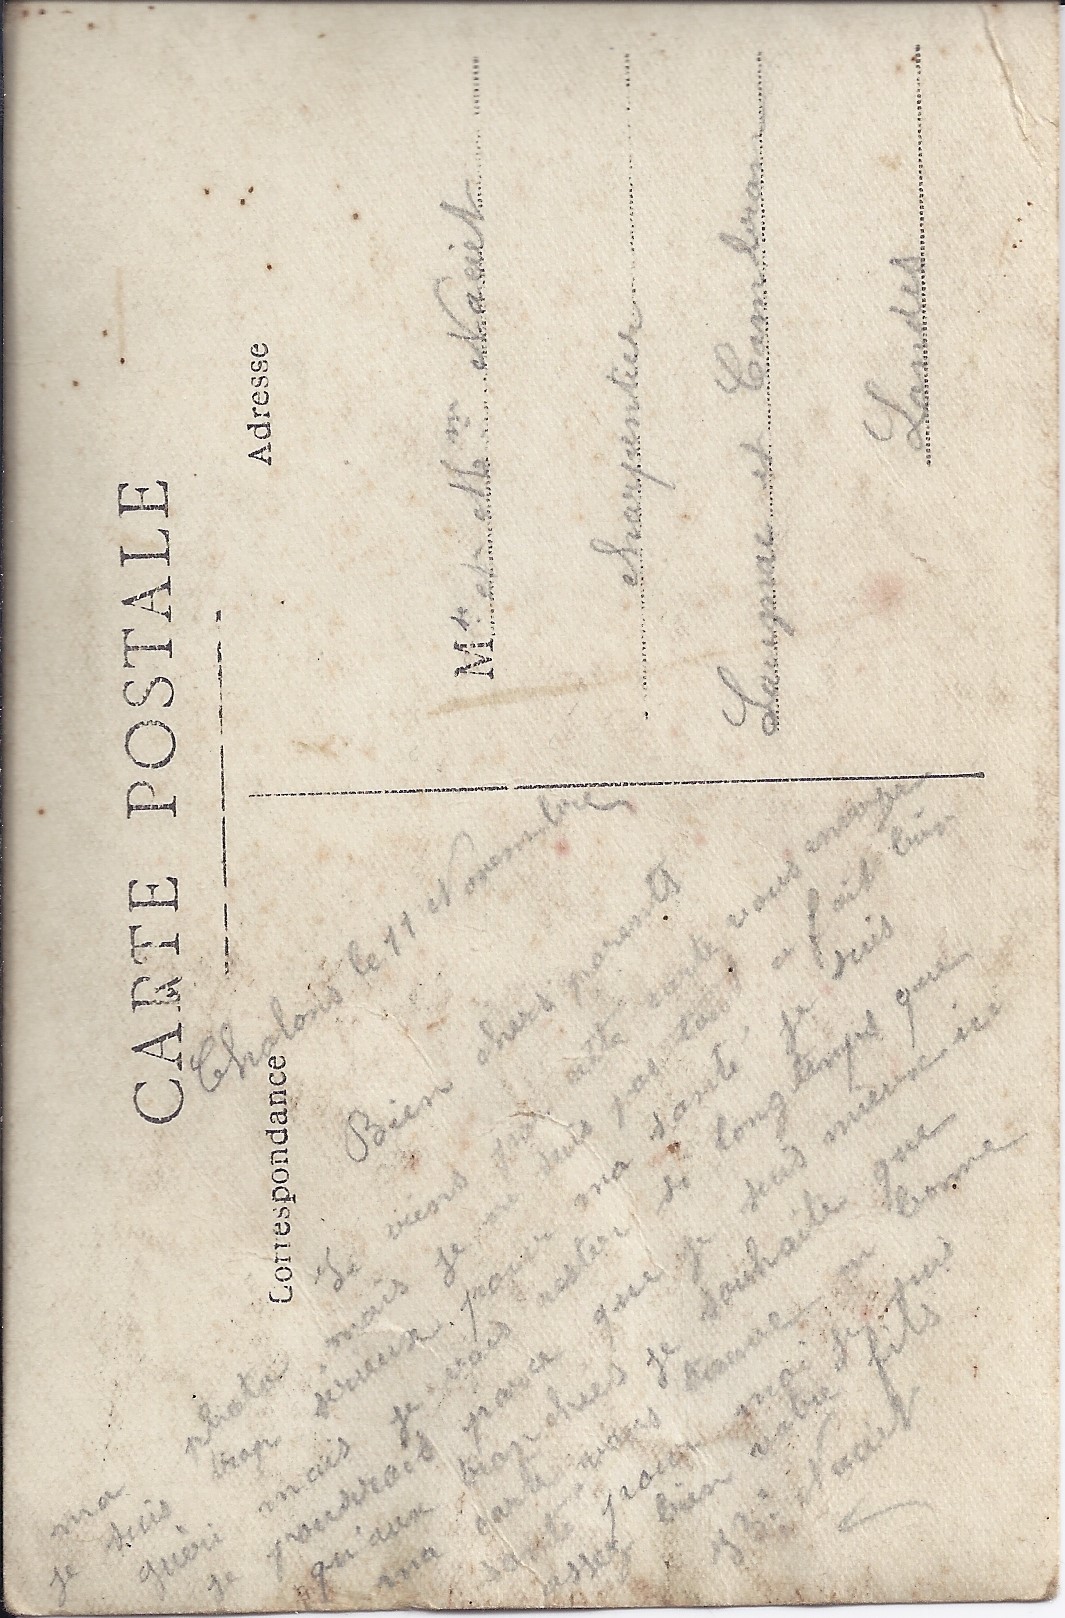 CARTE POSTALE
Correspondance
Adresse
Chalons le 11 Novembre
Bien chers parents
Je viens par cette carte vous envoyer
ma photo mais je ne suis pas tout a fait bien
je suis trop serieux pour ma santé je suis
guéri mais je vais rester si longtemps que
je pourrais parce que je suis mieux ici
qu'aux tranchées je souhaite que
ma carte vous trouve en bonne
santé pour moi je suis
assez bien votre fils
Naciet
Mr et Mme Naciet
charpentier
Laurquae et Cambran
Landes